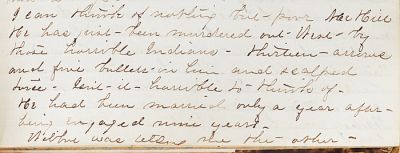 I can think of nothing but poor Mr Hill
He has just been murdered out West - by
those horrible Indians - thirteen arrows
and five bullets in him and scalped
twice - Isn't it horrible to think of -
He had been married only a year after
being engaged nine years -
Willie was telling me the other -